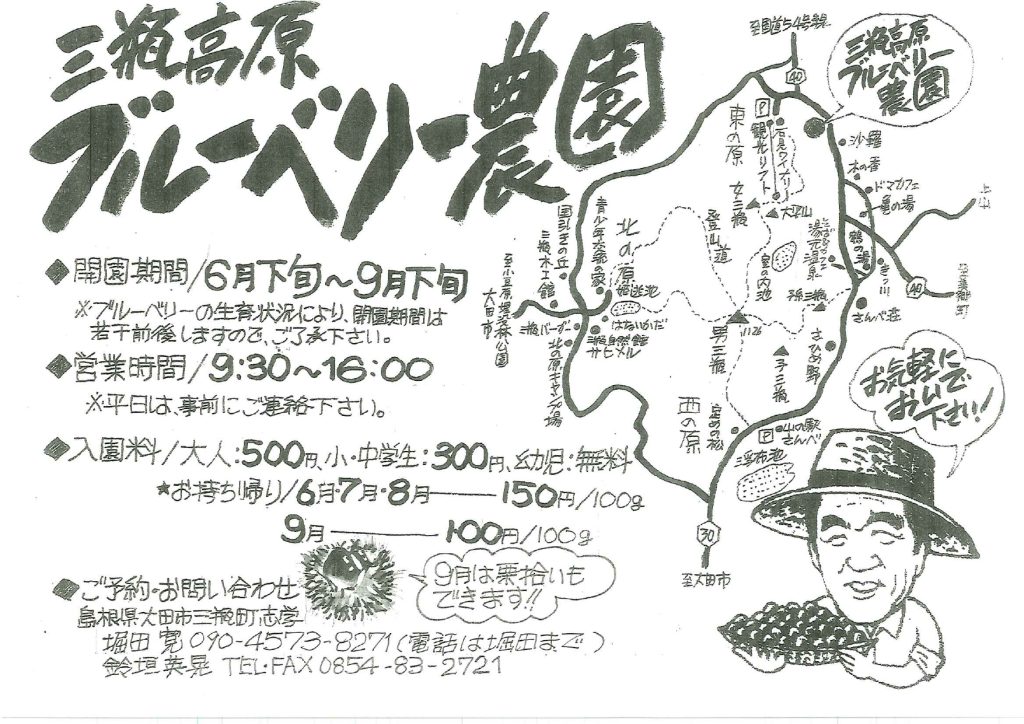 三瓶高原
ブルーベリー農園
◆開園期間/6月下旬〜9月下旬
※ブルーベリーの生育状況により、開園期間は
若干前後しますので、ご了承下さい。
◆営業時間/9:30〜16:00
※平日は、事前にご連絡下さい。
◆入園料/大人:500円、小・中学生:300円、幼児:無料
★お持ち帰り/6月・7月・8月――150円/100g
9月――100円/100g
9月は栗拾いも
できます!!
◆ご予約・お問い合わせ
島根県大田市三瓶町志学
堀田 寛 090-4573-8271(電話は堀田まで)
鈴垣英晃 TEL・FAX 0854-83-2721
至国道54号線
40
三瓶高原
ブルーベリー
農園
東の原
P
観光リフト
石見ワイナリー
沙羅
木の香
ドマカフェ
亀の湯
鶴の湯
大平山
女三瓶
登山道
室の内池
湯元温泉
孫三瓶
さんべ荘
40
至美郷町
さひめ野
男三瓶
1126
子三瓶
北の原
姫逃池
はないかだ
青少年交流の家
国引きの丘
三瓶木工館
至小豆原埋没林公園
大田市
三瓶バーガー
三瓶自然館
サヒメル
北の原キャンプ場
西の原
定めの松
P
山の駅
さんべ
浮布池
30
至大田市
お気軽に
おいで
下さい!